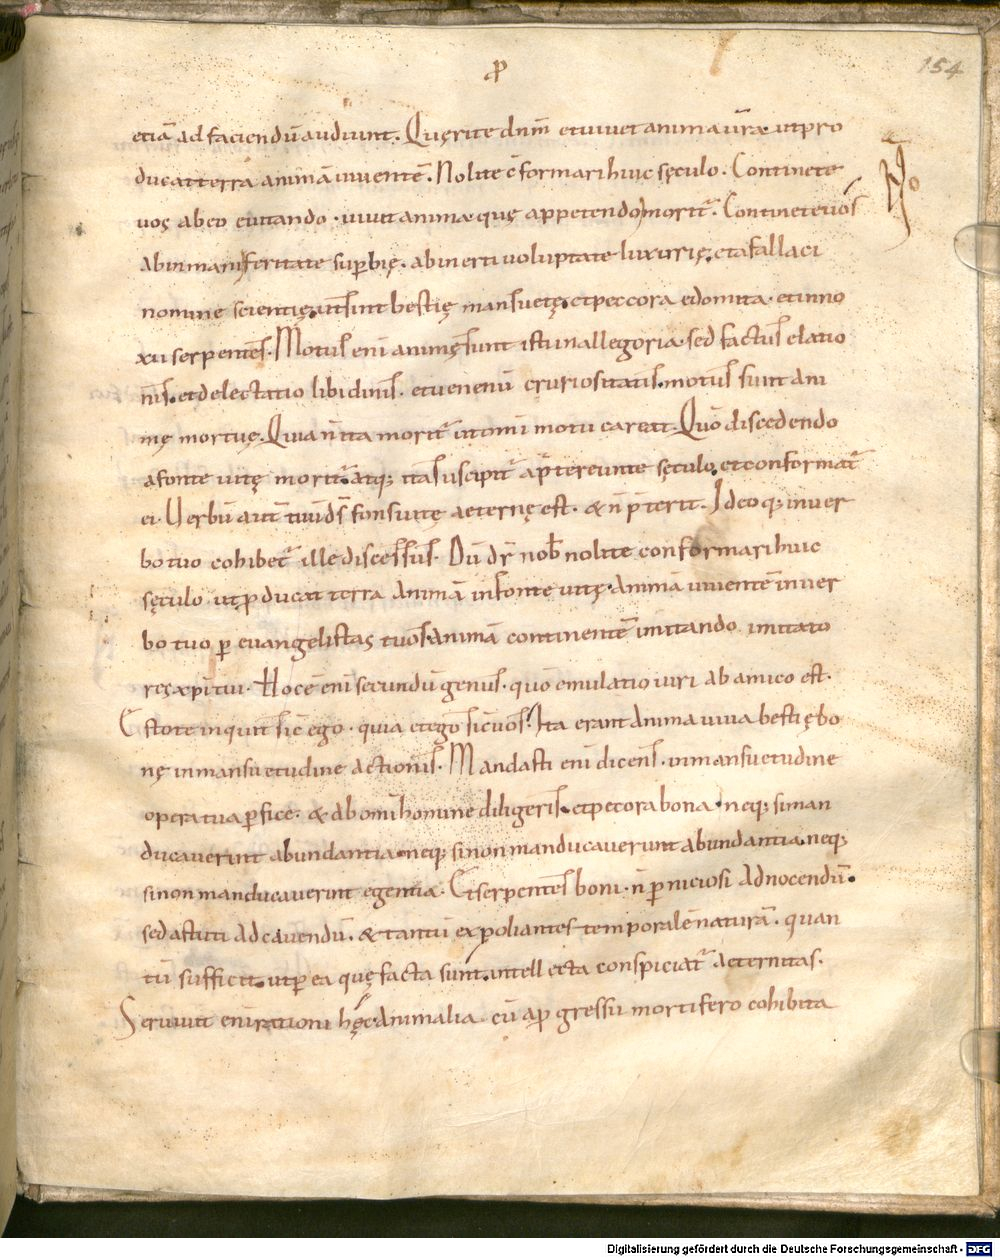 ꝓ
154
etiā ad faciendū audiunt. Quęrite dn̄m et vivet anima vr̄a. ut pro
ducat terra animā viventē. Nolite c̄formari huic sęculo. Continete
vos ab eo evitando. vivit anima quę appetendo moritᷣ. Continete vos
ab inmani feritate sup̱bię. ab inerti voluptate luxurię. et a fallaci
nomine scientię. ut sint bestię mansuetę. et peccora edomita. et inno
xii serpentes. Motus eni animę sunt isti in allegoria. sed factus elatio
nis. et delectatio libidinis. et venenū curiositatis. motus sunt ani
mę mortuę. Quia n̄ ita moritᷣ ut omi motu careat. Quō discedendo
a fonte vitę moritᷣ. atq; ita suscipitᷣ a p̄tereunte sęculo. et conformatᷣ
ei. Verbū aut̄ tuū ds̄ fons vitę aeternę est. & n̄ p̄terit. Ideoq; in ver
bo tuo cohibetᷣ ille discessus. Dū dr̄ nob̄ nolite conformari huic
sęculo. ut ꝓducat terra animā in fonte vitę. animā viventē in ver
bo tuo ꝑ evangelistas tuos. animā continentē imitando imitato
res xp̄i tui. Hoc ē eni secundū genus. quō emulatio viri ab amico est.
Estote inquit sic ego. quia et ego sic vos. Ita erant anima viva bestię bo
nę in mansuetudine actionis. Mandasti eni dicens. in mansuetudine
opera tua ꝑfice. & ab omi homine diligeris. et pecora bona. neq; si man
ducaverint abundantia. neq; si non manducaverunt abundantia. neq;
si non manducaverint egentia. Et serpentes boni. n̄ ꝑniciosi ad nocendū.
sed astuti ad cavendū. & tantū expoliantes temporalē naturā. quan
tū sufficit. ut ꝑ ea quę facta sunt. intellecta conspiciatᷣ aeternitas.
Serviunt eni rationi hęc animalia. cū a ꝓgressu mortifero cohibita
Digitalisierung gefördert durch die Deutsche Forschungsgemeinschaft - DFG